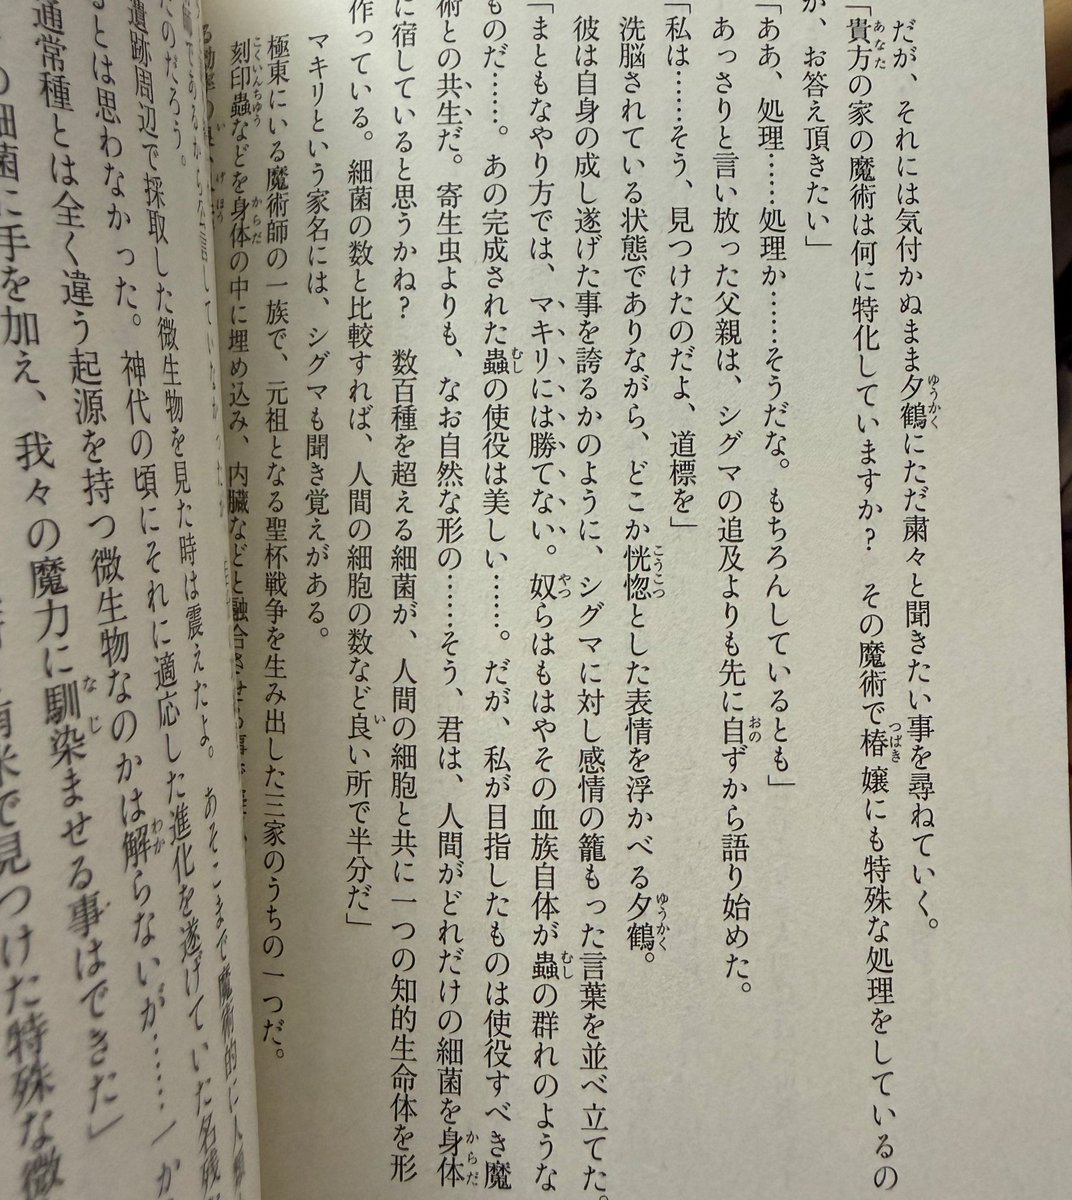 だが、それには気付かぬまま夕鶴にただ粛々と聞きたい事を尋ねていく。
「貴方の家の魔術は何に特化していますか？　その魔術で椿嬢にも特殊な処理をしているの
か、お答え頂きたい」
「ああ、処理……処理か……そうだな。もちろんしているとも」
あっさりと言い放った父親は、シグマの追及よりも先に自ずから語り始めた。
「私は……そう、見つけたのだよ、道標を」
洗脳されている状態でありながら、どこか恍惚とした表情を浮かべる夕鶴。
彼は自身の成し遂げた事を誇るかのように、シグマに対し感情の籠もった言葉を並べ立てた。
「まともなやり方では、マキリには勝てない。奴らはもはやその血族自体が蟲の群れのような
ものだ……。あの完成された蟲の使役は美しい……。だが、私が目指したものは使役すべき魔
術との共生だ。寄生虫よりも、なお自然な形の……そう、君は、人間がどれだけの細菌を身体
に宿していると思うかね？　数百種を超える細菌が、人間の細胞と共に一つの知的生命体を形
作っている。細菌の数と比較すれば、人間の細胞の数など良い所で半分だ」
マキリという家名には、シグマも聞き覚えがある。
極東にいる魔術師の一族で、元祖となる聖杯戦争を生み出した三家のうちの一つだ。
刻印蟲などを身体の中に埋め込み、内臓などと融合させる事で
たのだろう。
遺跡周辺で採取した微生物を見た時は震えたよ。あそこまで魔術的に
るとは思わなかった。神代の頃にそれに適応した進化を遂げていた名残
通常種とは全く違う起源を持つ微生物なのかは解らないが……
の細菌に手を加え、我々の魔力に馴染ませる事はできた」
南米で見つけた特殊な微